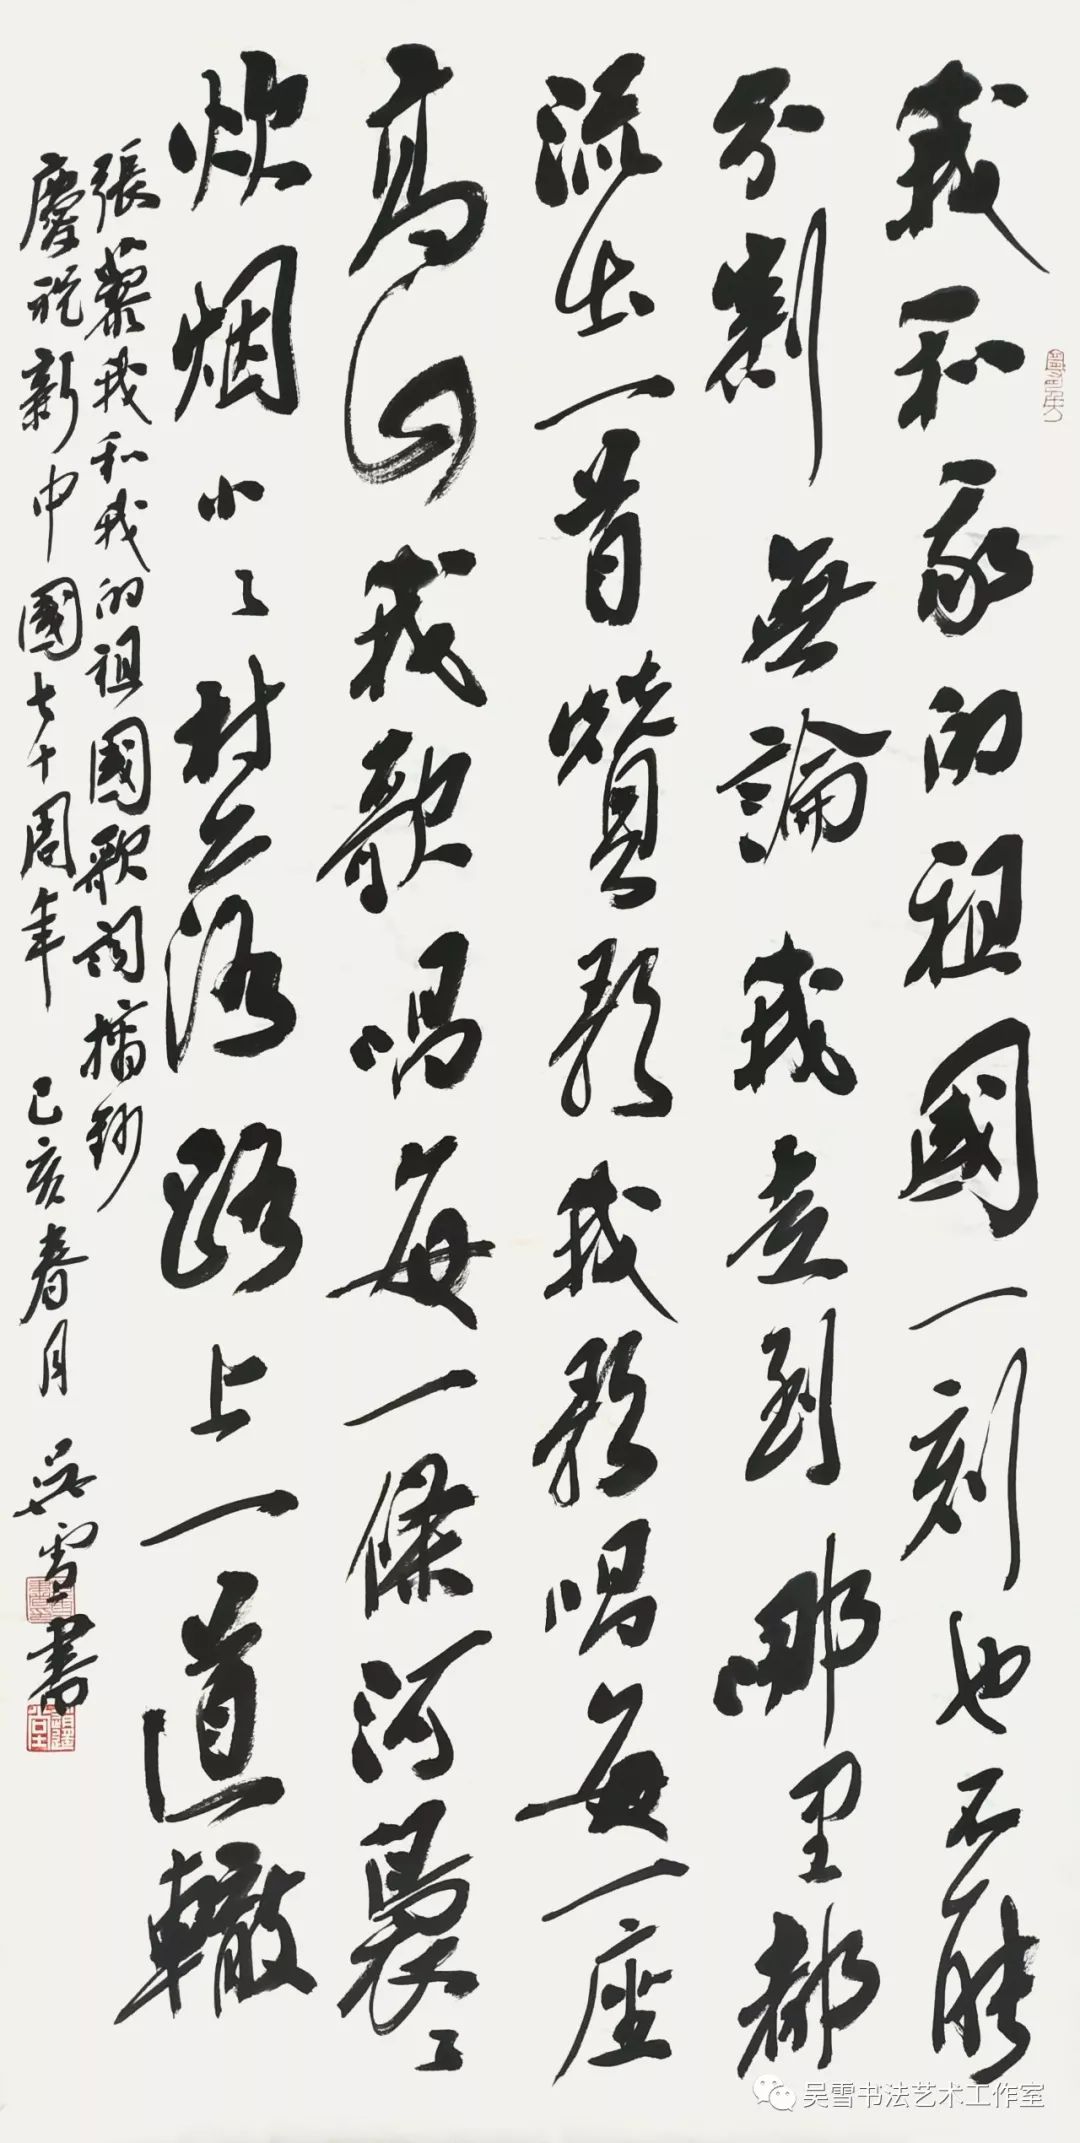 我和我的祖國一刻也不能
分割無論我走到哪里都
流出一首贊歌我歌唱每一座
高山我歌唱每一條河裊〻
炊烟小〻村落路上一道轍
張藜我和我的祖國歌詞摘鈔
慶祝新中國七十周年 己亥春月 吳雪書
吴雪书法艺术工作室